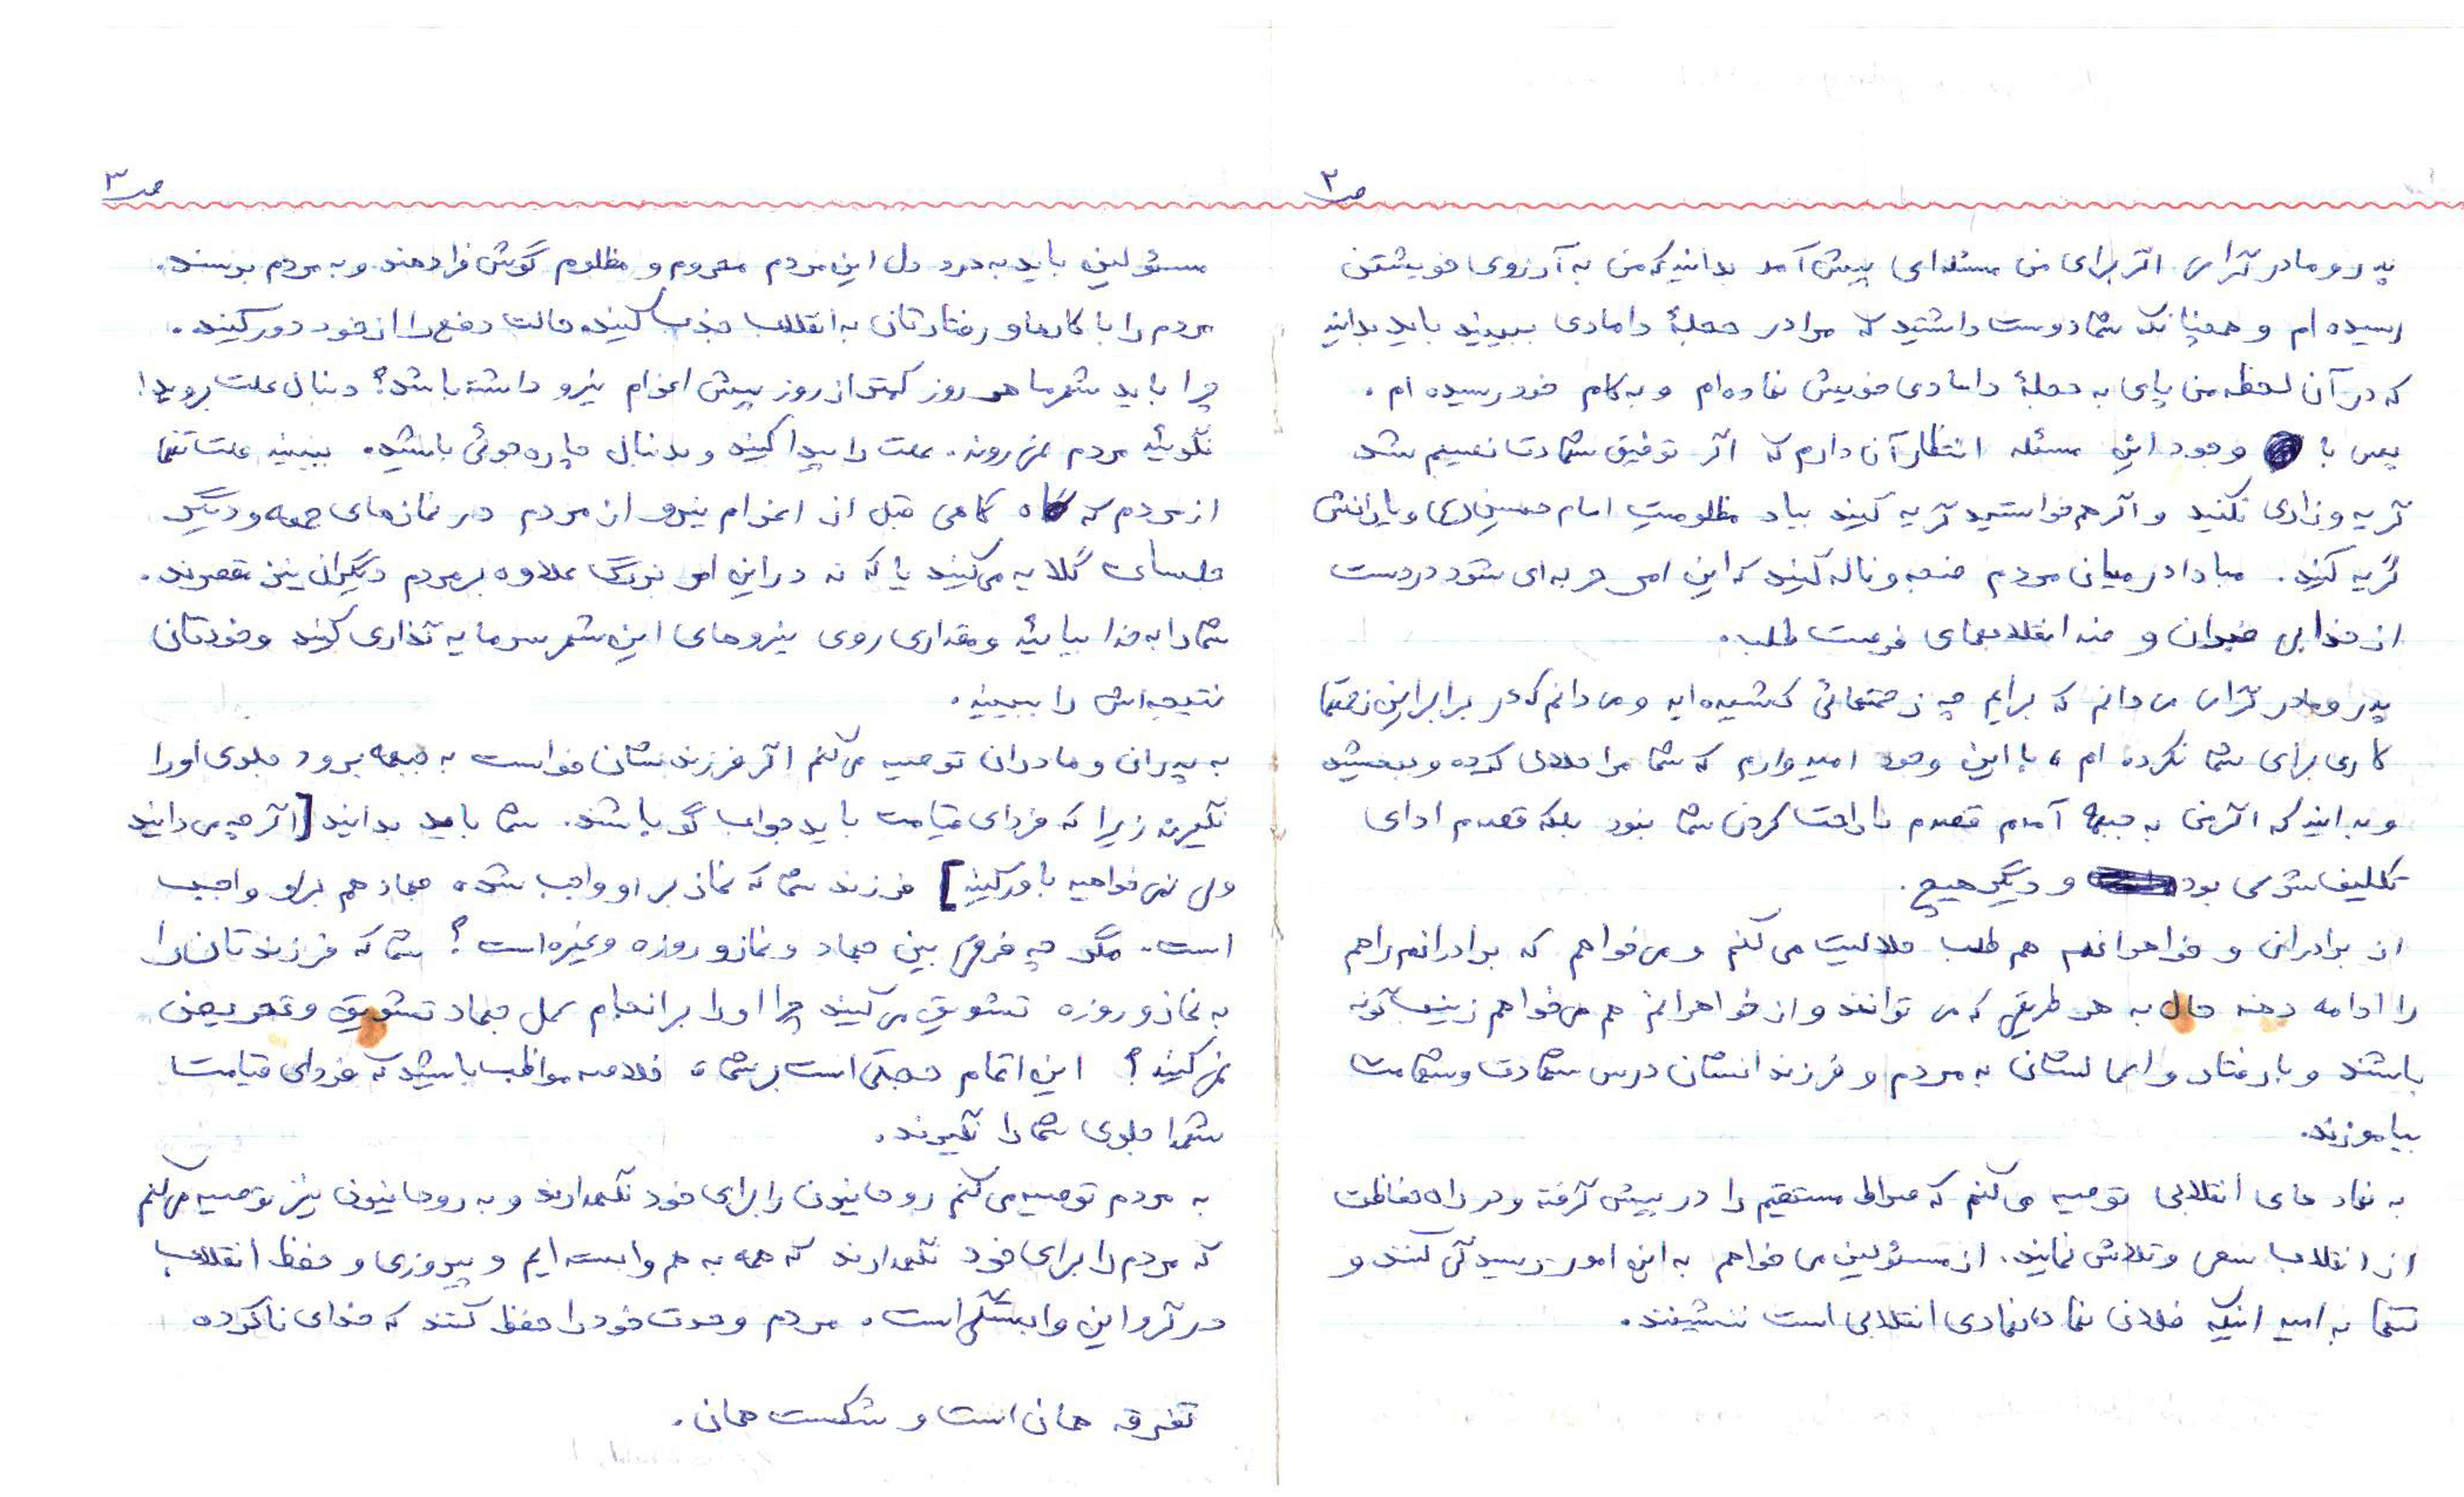 ص ۲
پدر و مادر گرامی اگر برای من مسئله‌ای پیش آمد بدانید که من به آرزوی خویشتن
رسیده‌ام و همچنانکه شما دوست داشتید که مرا در حجلهٔ دامادی ببینید باید بدانید
که در آن لحظه من پای به حجلهٔ دامادی خویش نهاده‌ام و به کام خود رسیده‌ام.
پس با وجود این مسئله انتظار آن دارم که اگر توفیق شهادت نصیبم شد
گریه و زاری نکنید و اگر هم خواستید گریه کنید بیاد مظلومیت امام حسین (ع) و یارانش
گریه کنید. مبادا در میان مردم ضجه و ناله کنید که این امر حربه‌ای شود در دست
از خدا بی خبران و ضد انقلابهای فرصت طلب.
پدر و مادر گرامی می دانم که برایم چه زحمتهائی کشیده‌اید و می دانم که در برابر این زحمتها
کاری برای شما نکرده‌ام، با این وجود امیدوارم که شما مرا حلال کرده و ببخشید
و بدانید که اگر من به جبهه آمدم قصدم ناراحت کردن شما نبود بلکه قصدم ادای
تکلیف شرعی بود و دیگر هیچ.
از برادران و خواهرانم هم طلب حلالیت می کنم و می خواهم که برادرانم راهم
را ادامه دهند حال به هر طریقی که می توانند و از خواهرانم هم می خواهم زینب گونه
باشند و با رفتار و اعمالشان به مردم و فرزندانشان درس شهادت و شهامت
بیاموزند.
به نهادهای انقلابی توصیه می کنم که صراط مستقیم را در پیش گرفته و در راه حفاظت
از انقلاب سعی و تلاش نمایند. از مسئولین می خواهم به این امور رسیدگی کنند و
تنها به امید اینکه فلان نهاد نهادی انقلابی است ننشینند.
ص ۳
مسئولین باید به درد دل این مردم محروم و مظلوم گوش فرا دهند و به مردم برسند.
مردم را با کارها و رفتارتان به انقلاب جذب کنید حالت دفع را از خود دور کنید.
چرا باید شهر ما هر روز کمتر از روز پیش اعزام نیرو داشته باشد؟ دنبال علت بروید!
نگوئید مردم نمی روند. علت را پیدا کنید و بدنبال چاره جوئی باشید. ببینید علت تنها
از مردم که گاه گاهی قبل از اعزام نیرو از مردم در نمازهای جمعه و دیگر
جلسات گلایه می کنید یا که نه در این امر بزرگ علاوه بر مردم دیگران نیز مقصرند.
شما را به خدا بیائید و مقداری روی نیروهای این شهر سرمایه گذاری کنید و خودتان
نتیجه‌اش را ببینید.
به پدران و مادران توصیه می کنم اگر فرزندشان خواست به جبهه برود جلوی او را
نگیرند زیرا که فردای قیامت باید جوابگو باشند. شما باید بدانید [اگر چه می دانید
ولی نمی خواهید باور کنید] فرزند شما که نماز بر او واجب شده جهاد هم براو واجب
است. مگر چه فرقی بین جهاد و نماز و روزه و غیره است؟ شما که فرزندتان را
به نماز و روزه تشویق می کنید چرا او را بر انجام عمل جهاد تشویق و تحریض
نمی کنید؟ این اتمام حجتی است بر شما، خلاصه مواظب باشید که فردای قیامت
شهدا جلوی شما را نگیرند.
به مردم توصیه می کنم روحانیون را برای خود نگهدارند و به روحانیون نیز توصیه می کنم
که مردم را برای خود نگهدارند که همه به هم وابسته‌ایم و پیروزی و حفظ انقلاب
در گرو این وابستگی است. مردم وحدت خود را حفظ کنند که خدای ناکرده
تفرقه همان است و شکست همان.